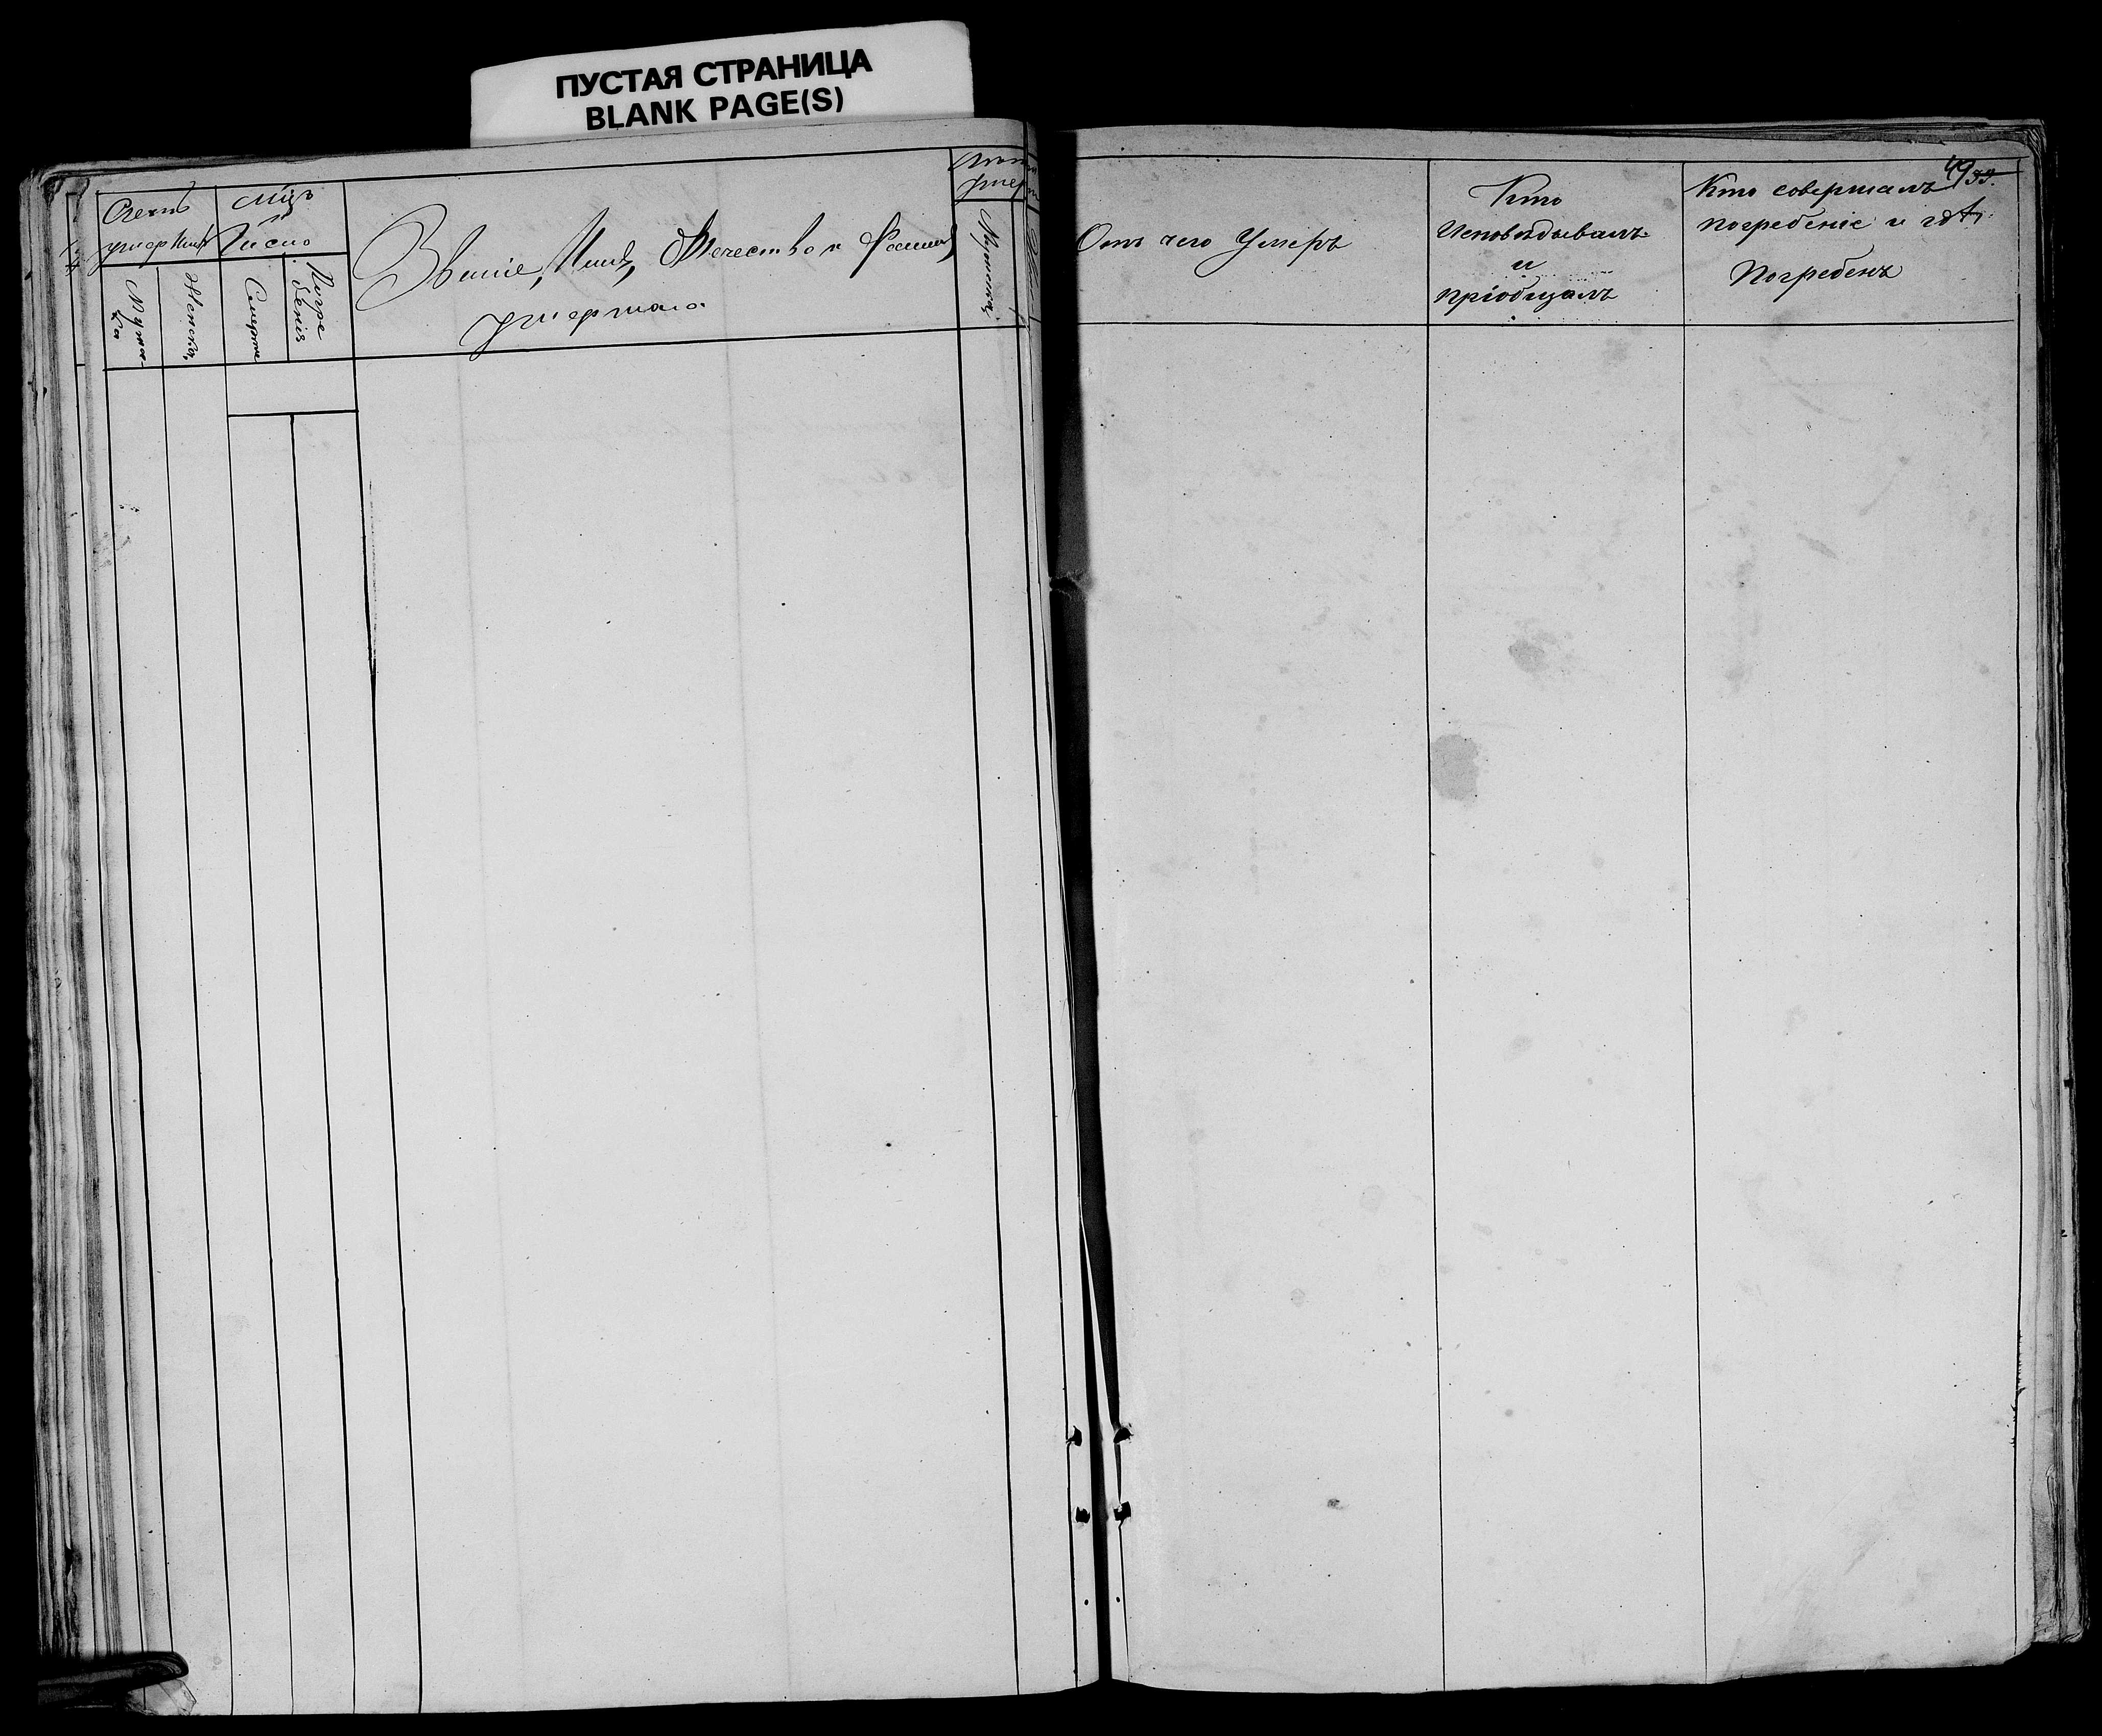 ПУСТАЯ СТРАНИЦА
BLANK PAGE(S)
Счетъ
умершихъ
Мужеска
Женска
Мцъ
и
Число
Смерти
Погребенія
Званіе, Имя, Отечество и Фамилія
умершаго
умер
Мужеска
Отъ чего Умеръ
Кто
Исповѣдывалъ
и
пріобщалъ
49
33.
Кто совершалъ
погребеніе и гдѣ
Погребенъ